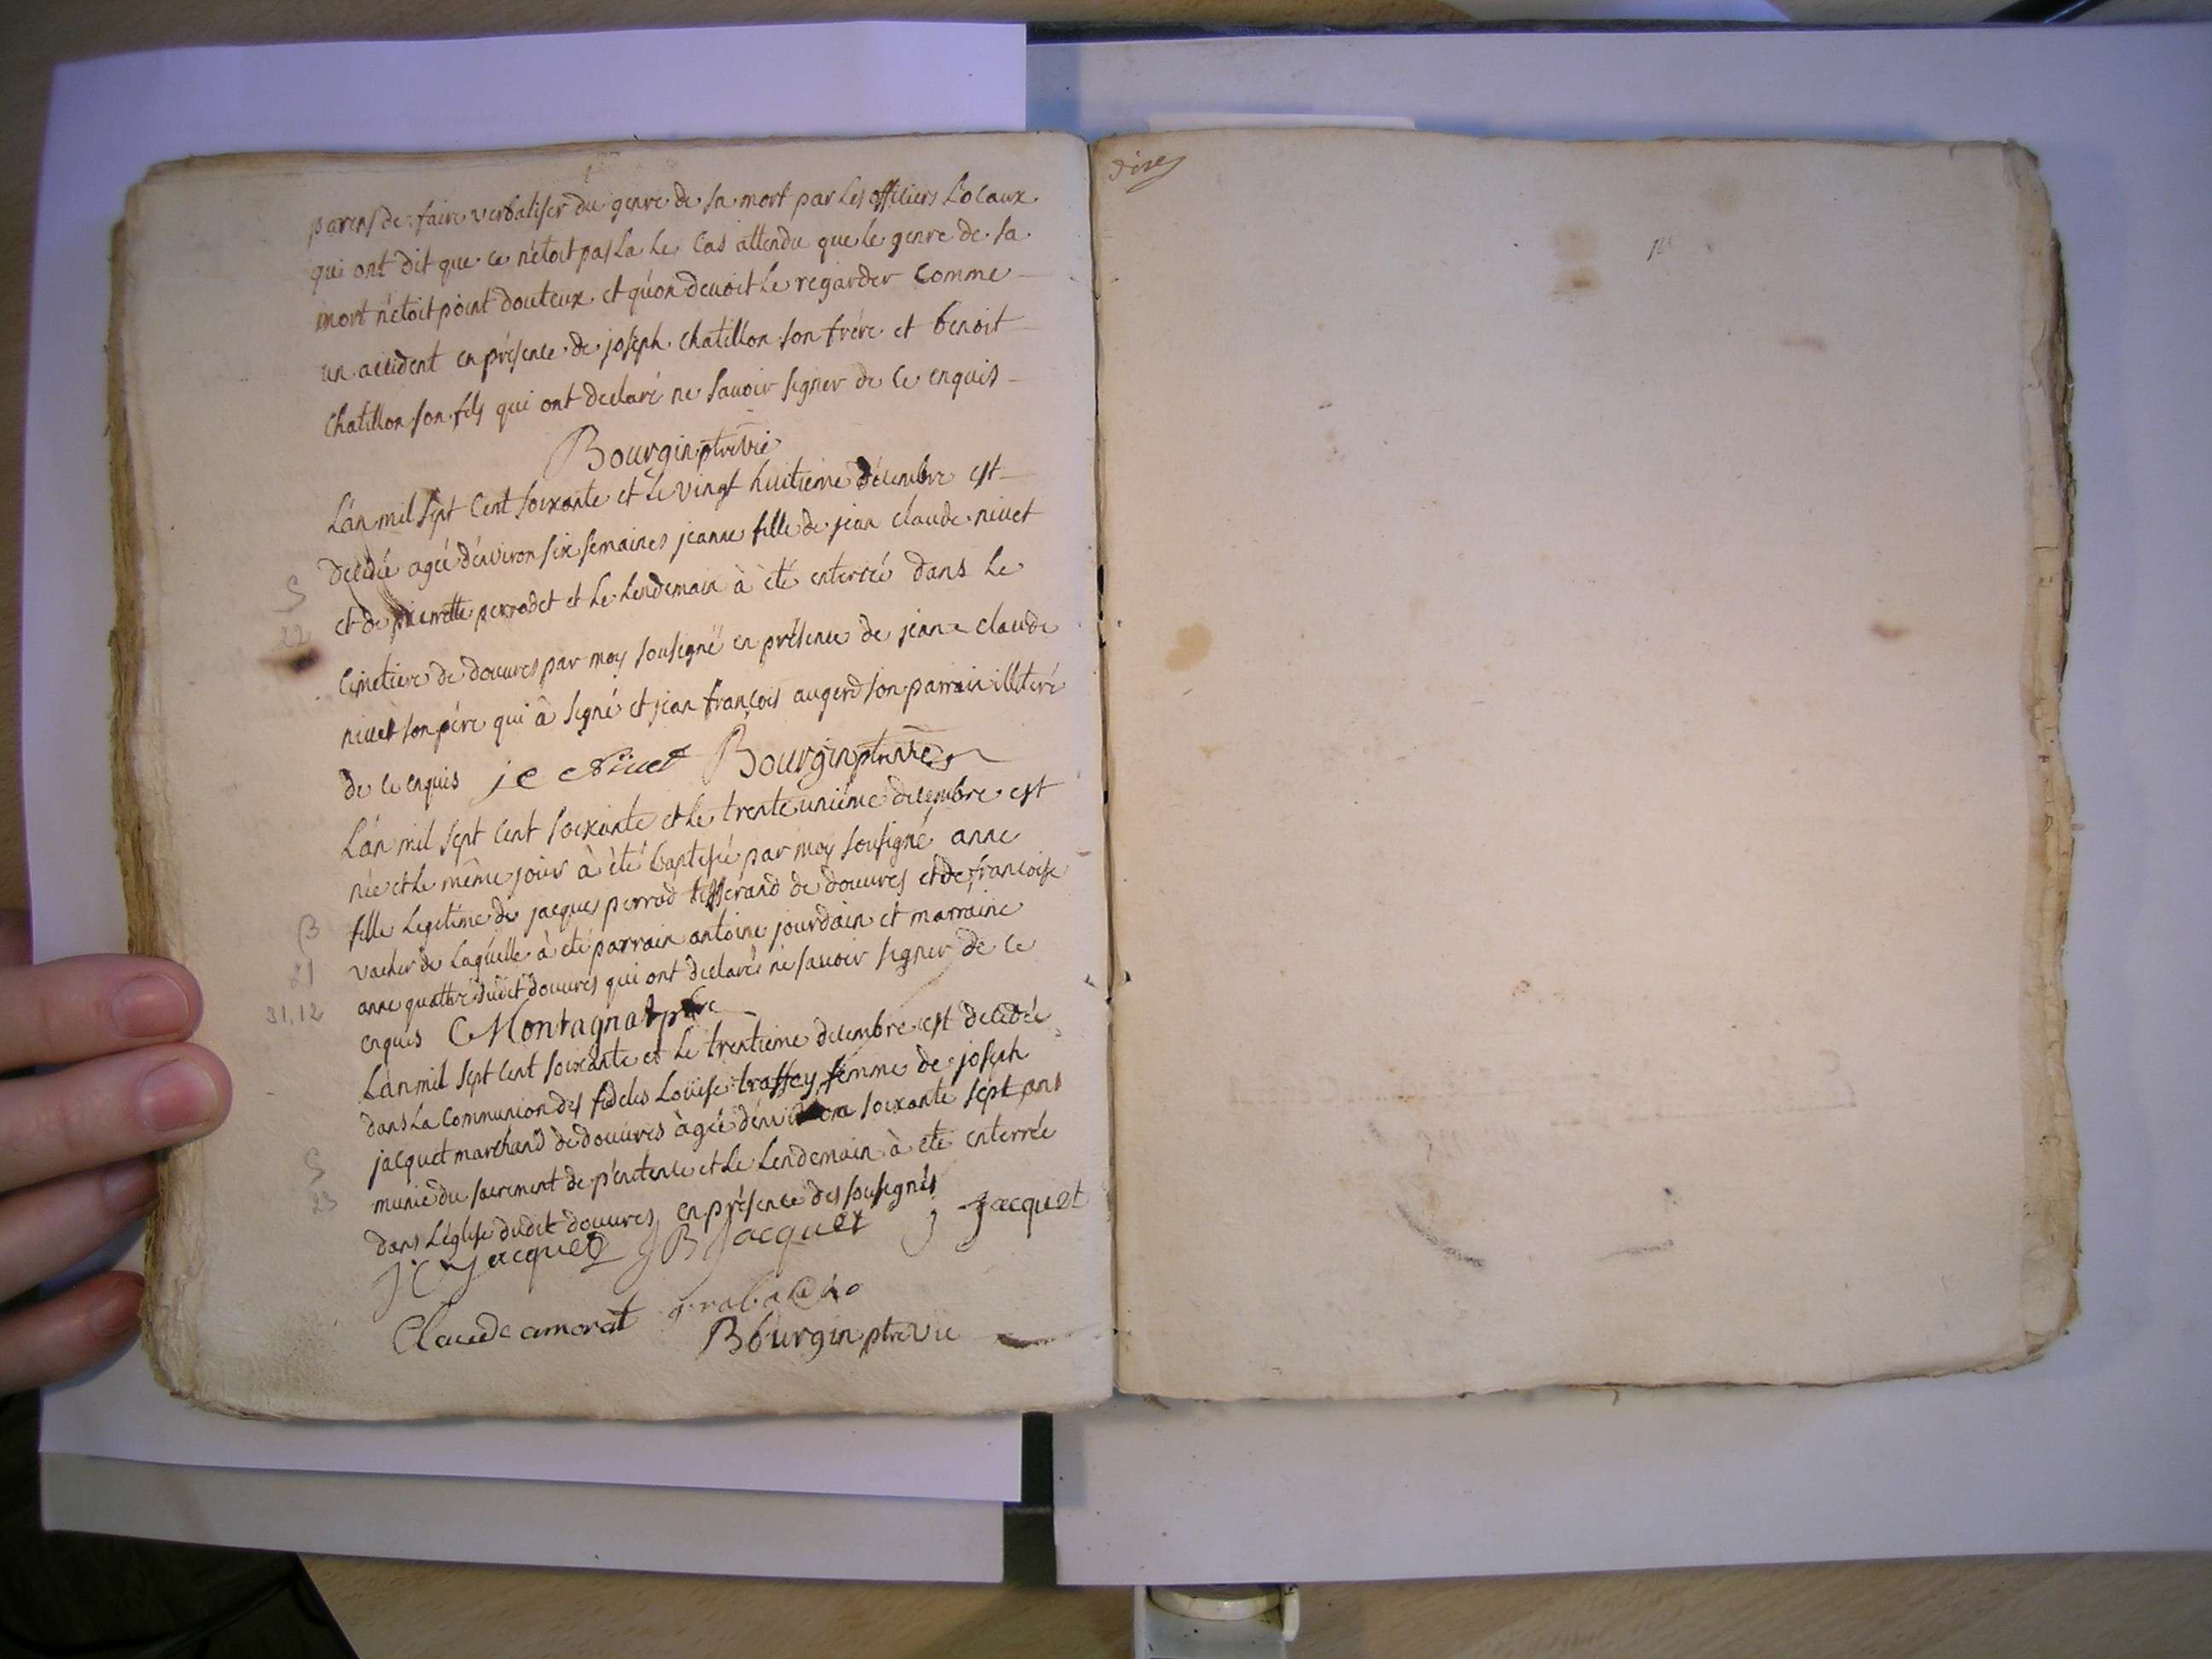 parens de faire verbaliser du genre de sa mort par les officiers locaux
qui ont dit que ce n'étoit pas la le cas attendu que le genre de sa
mort n'étoit point douteux et qu'on devoit le regarder comme
un accident en présence de joseph chatillon son frère et benoit
chatillon son fils qui ont declaré ne savoir signer de ce enquis
Bourgin ptre vic
L'an mil sept cent soixante et le vingt huitieme décembre est
décédée agée d'environ six semaines jeanne fille de jean claude nivet
S
et de pierrette perrodet et le lendemain à été enterrée dans le
22
cimetiere de douvres par moy sousigné en présence de jean claude
nivet son père qui à signé et jean françois augerd son parrain illiteré
de ce enquis jc Nivet Bourgin ptre vic
L'an mil sept cent soixante et le trente unième decembre est
née et le même jour à été baptisée par moy sousigné anne
fille legitime de jacques perrod tisserand de douvres et de francoise
B
vacher de laquelle à été parrain antoine jourdain et marraine
21
anne quattre dudit douvres qui ont declarés ne savoir signer de ce
31,12
enquis Montagnat ptre
L'an mil sept cent soixante et le trentieme decembre est decedée
dans la communion des fideles Louise traffey femme de joseph
jacquet marchand de douvres àgée d'environ soixante sept ans
S
munie du sacrement de pénitence et le lendemain à été enterrée
23
dans l'église dudit douvres en présence des sousignés
JC Jacquet JB Jacquet j Jacquet
Claude amorat
Bourgin ptre vic